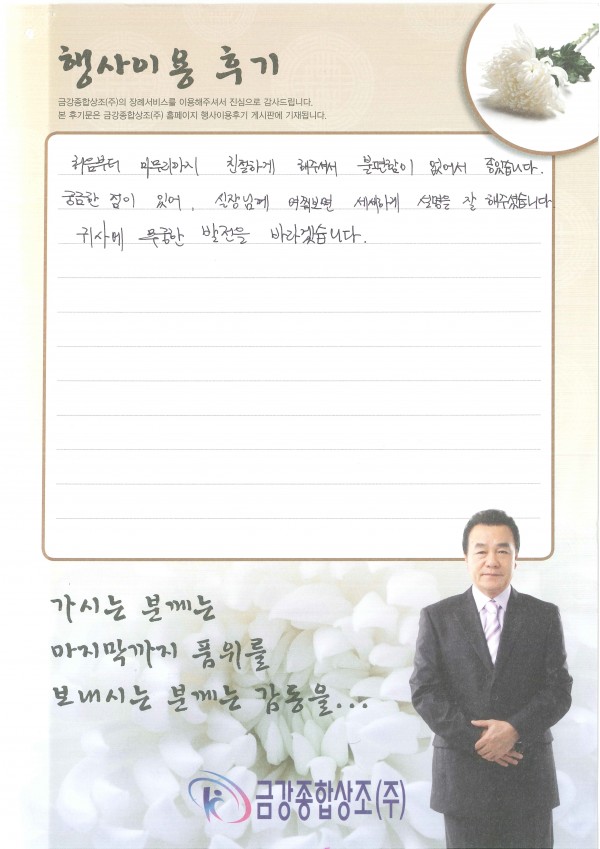 행사이용 후기
금강종합상조(주)의 장례서비스를 이용해주셔서 진심으로 감사드립니다.
본 후기문은 금강종합상조(주) 홈페이지 행사이용후기 게시판에 기재됩니다.
처음부터 마무리까지 친절하게 해주셔서 불편함이 없어서 좋았습니다.
궁금한 점이 있어, 실장님께 여쭤보면 세세하게 설명을 잘 해주셨습니다
귀사에 무궁한 발전을 바라겠습니다.
가시는 분께는
마지막까지 품위를
보내시는 분께는 감동을...
금강종합상조(주)